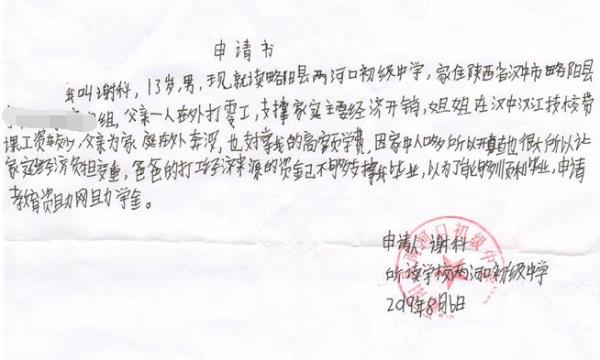 申请书
我叫谢科，13岁，男，现就读略阳县两河口初级中学，家住陕西省汉中市略阳县
组，父亲一人在外打零工，支撑家庭主要经济开销，姐姐在汉中汉江技校带
课工资较少，父亲为家庭在外奔波，也支撑我的高额学费，因家中人口多所以开支也很大所以让
家庭经济负担变重，爸爸的打工经济来源的资金已不够支撑我毕业，以为了能够顺利毕业，申请
教育资助网助学金。
申请人：谢科
所读学校：两河口初级中学
2019年8月6日
河口初级中